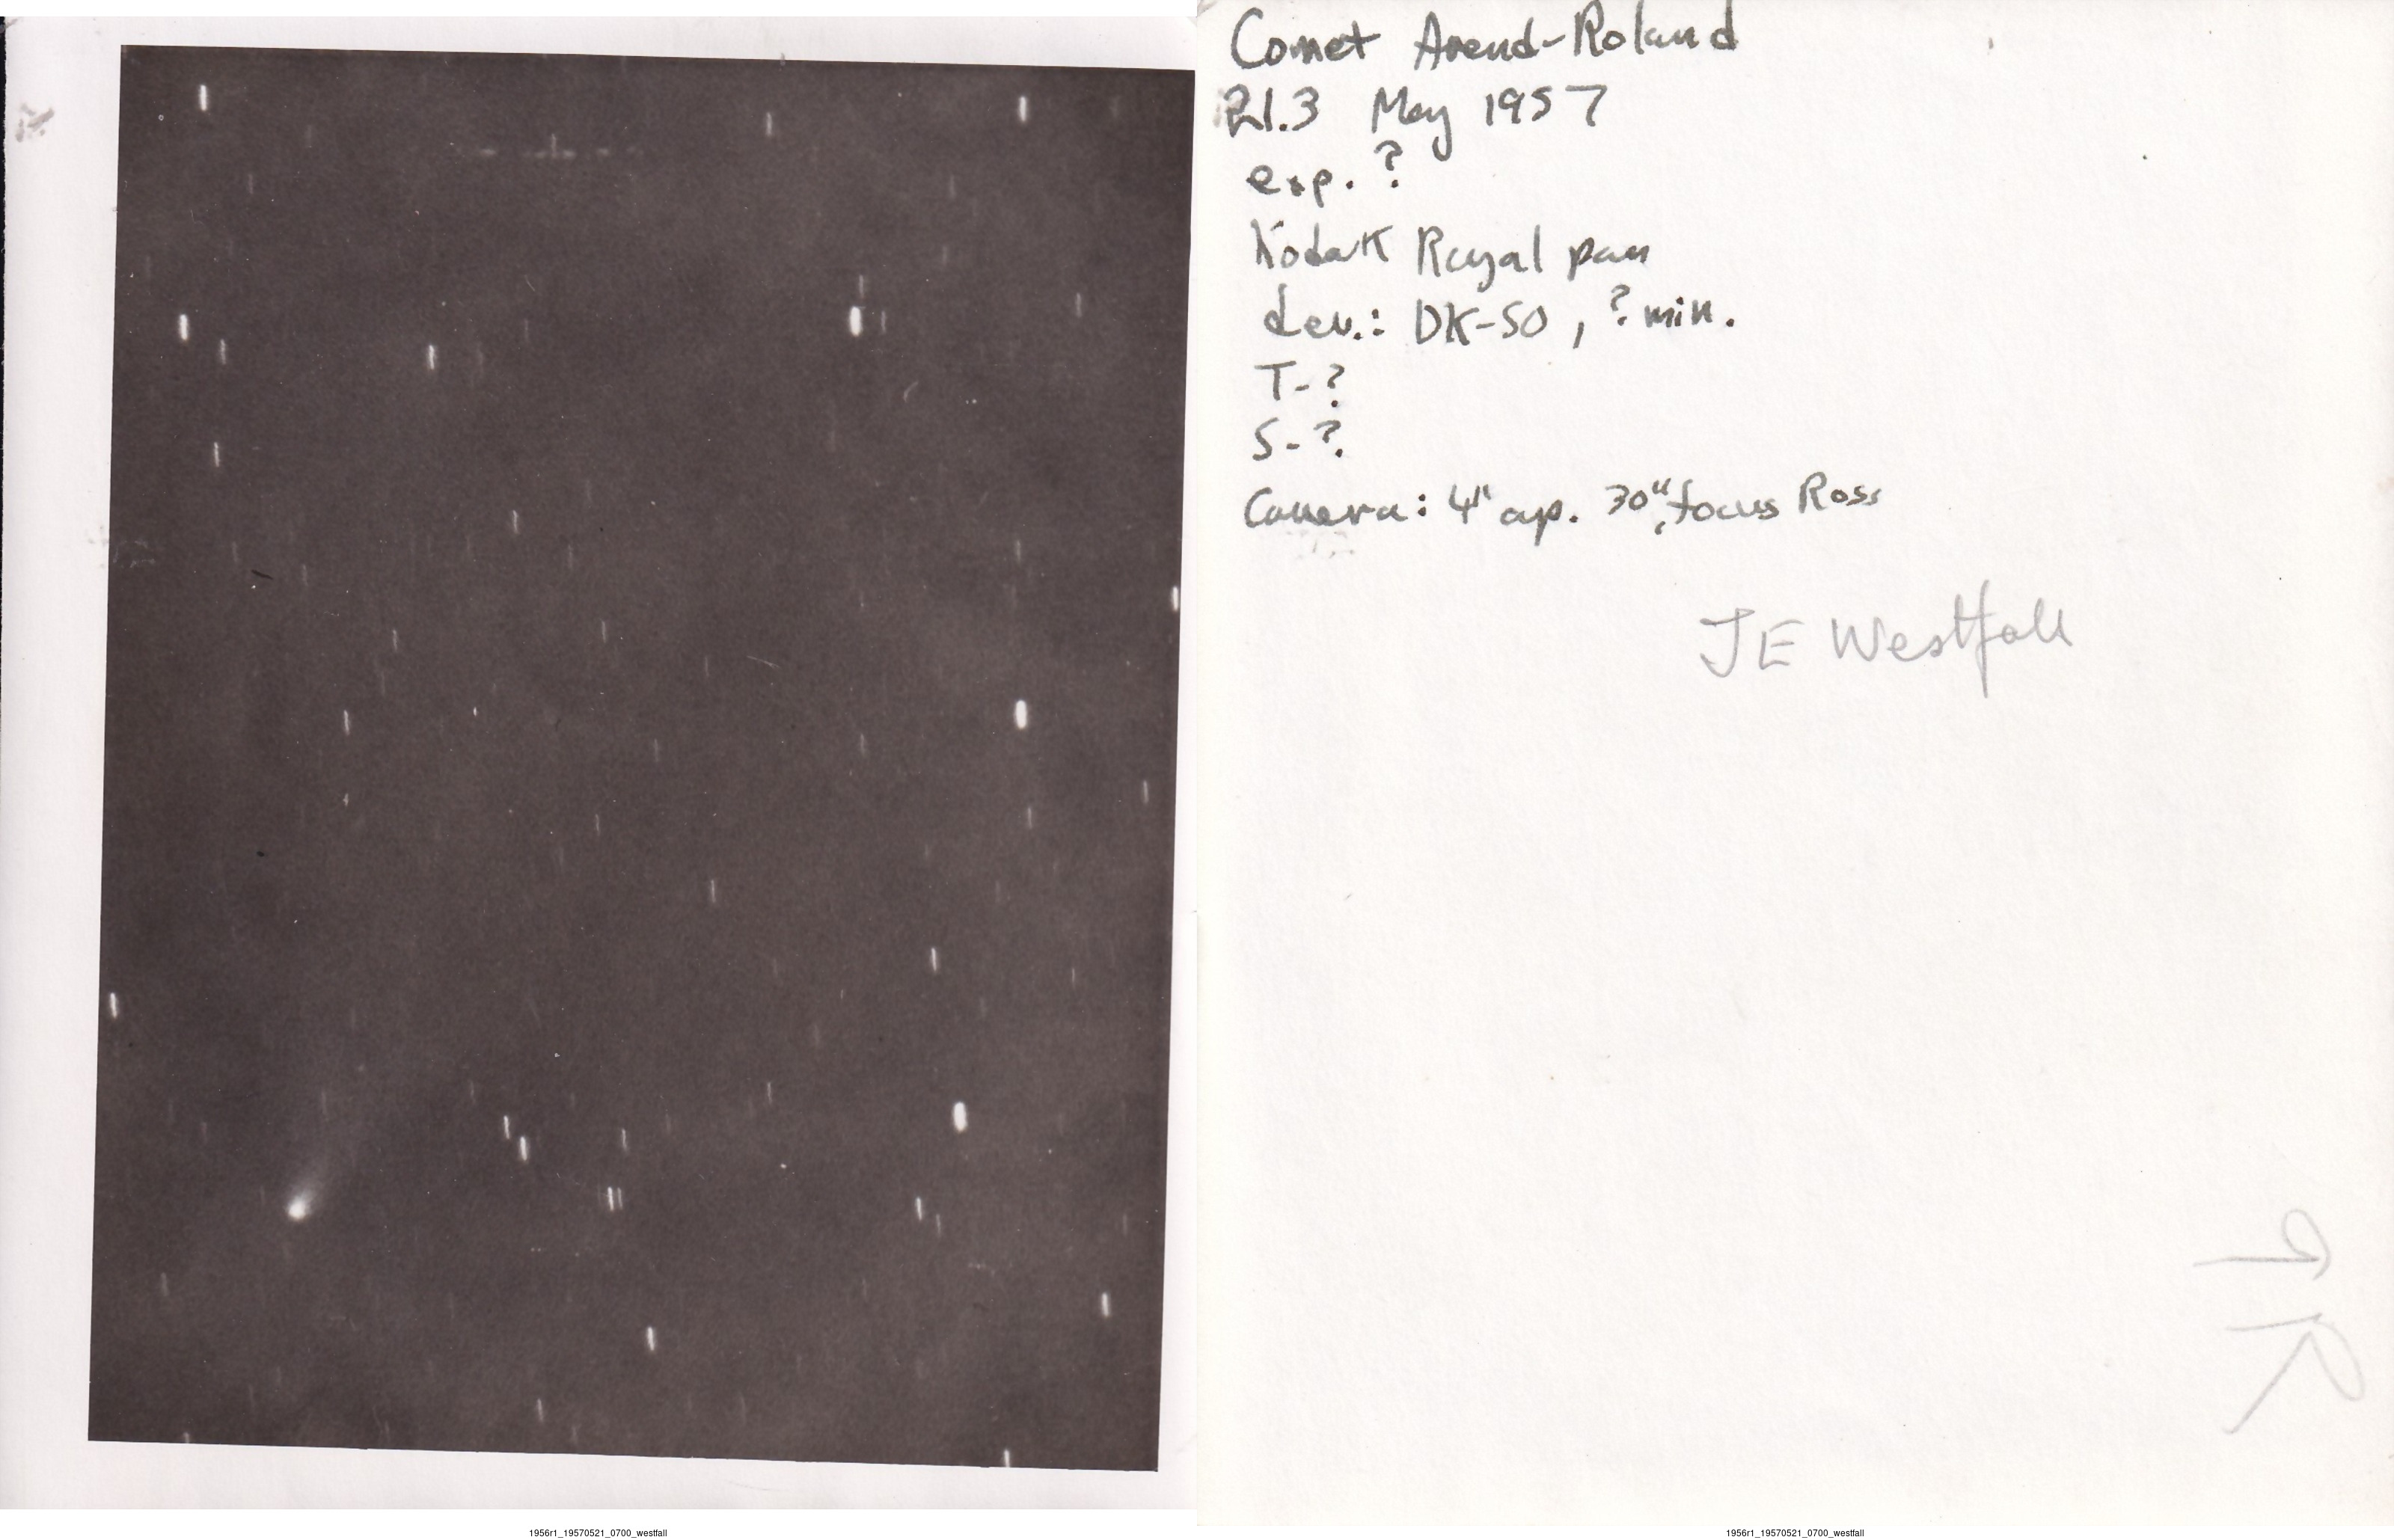 Comet Arend-Roland
21.3 May 1957
exp. ?
Kodak Royal pan
dev.: DK-50, ? min.
T-?
S-?
Camera: 4" ap. 30", focus Ross
JE Westfall
1956r1_19570521_0700_westfall
1956r1_19570521_0700_westfall